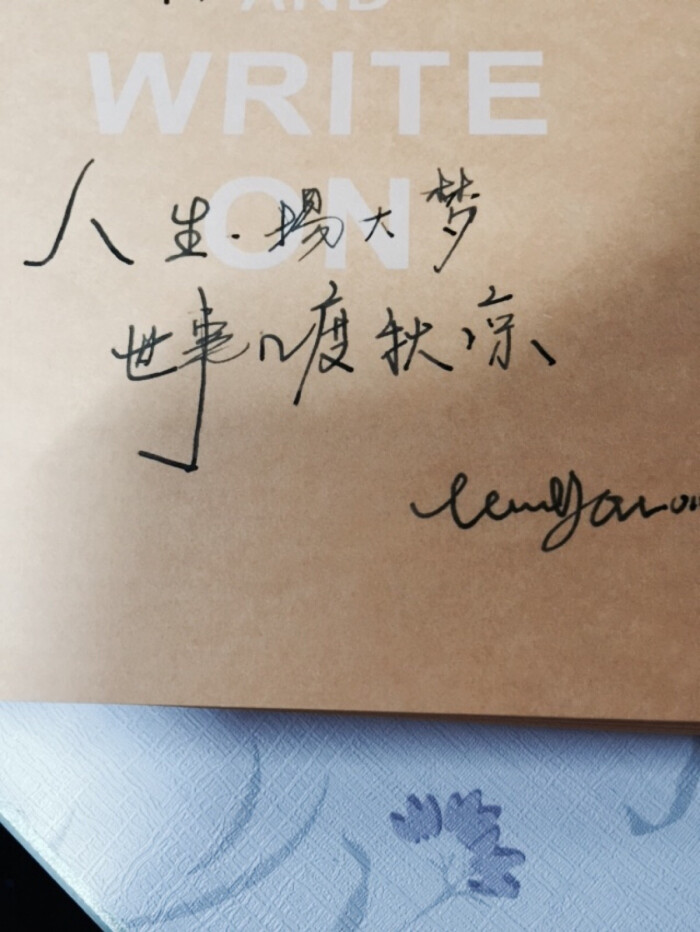 AND
WRITE
ON
人生一場大梦
世事几度秋凉